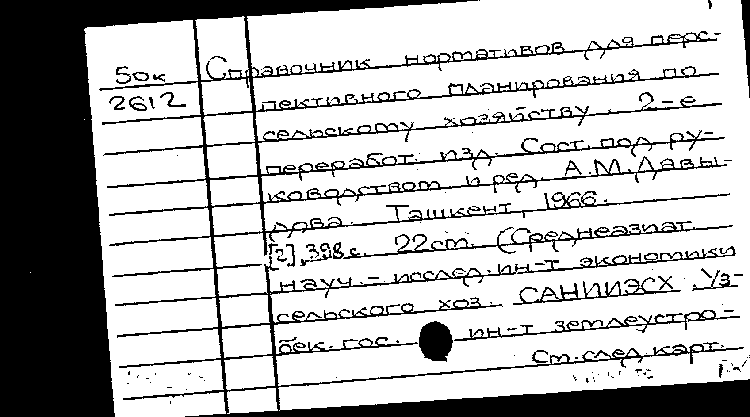 50к Справочник нормативов для перс-
2612 пективного планирования по
сельскому хозяйству. 2-е
переработ. изд. Сост. под ру-
ководством и ред. А.М. Давы-
дова. Ташкент, 1966.
[2], 398 с. 22 см. (Среднеазиат.
науч. - исслед. ин-т экономики
сельского хоз. САНИИЭСХ. Уз-
бек. гос. ин-т землеустро-
См. след. карт.